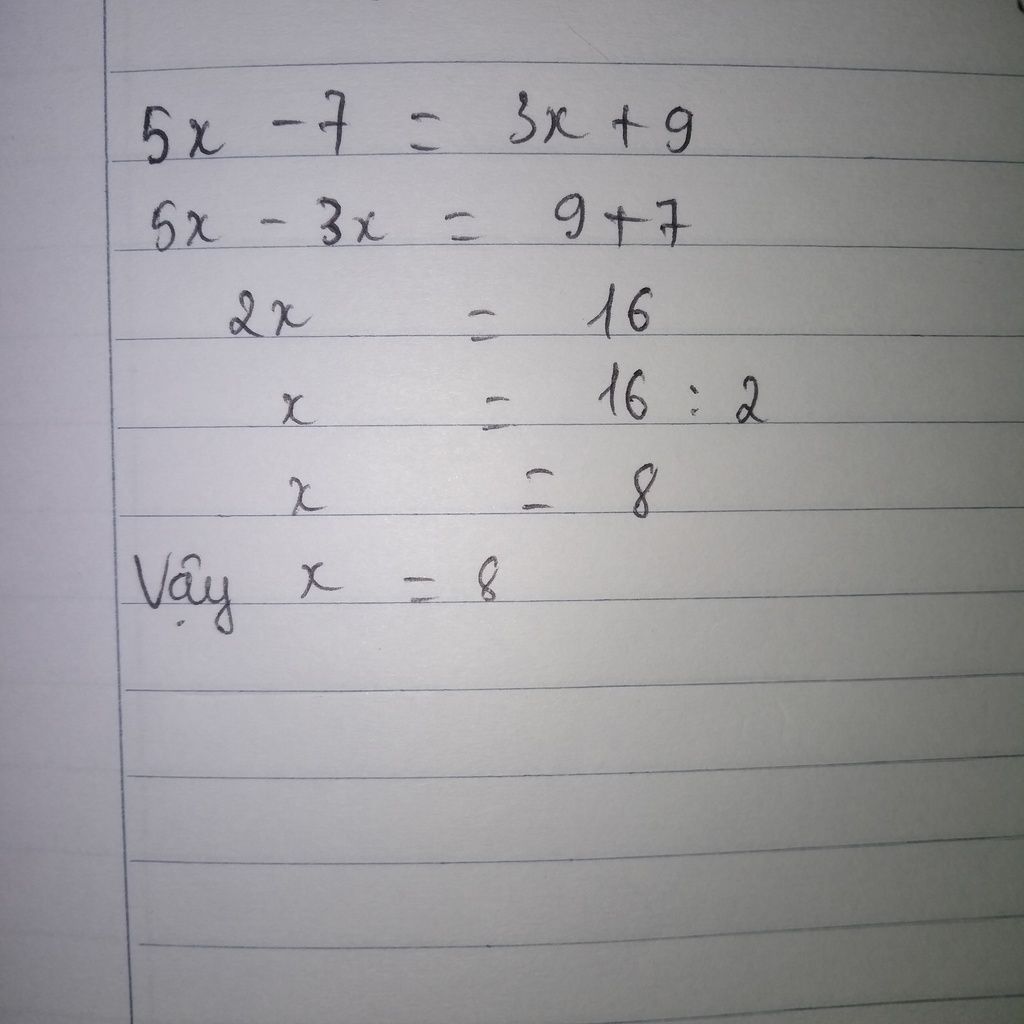 5x - 7 = 3x + 9
5x - 3x = 9 + 7
2x = 16
x = 16 : 2
x = 8
Vậy x = 8